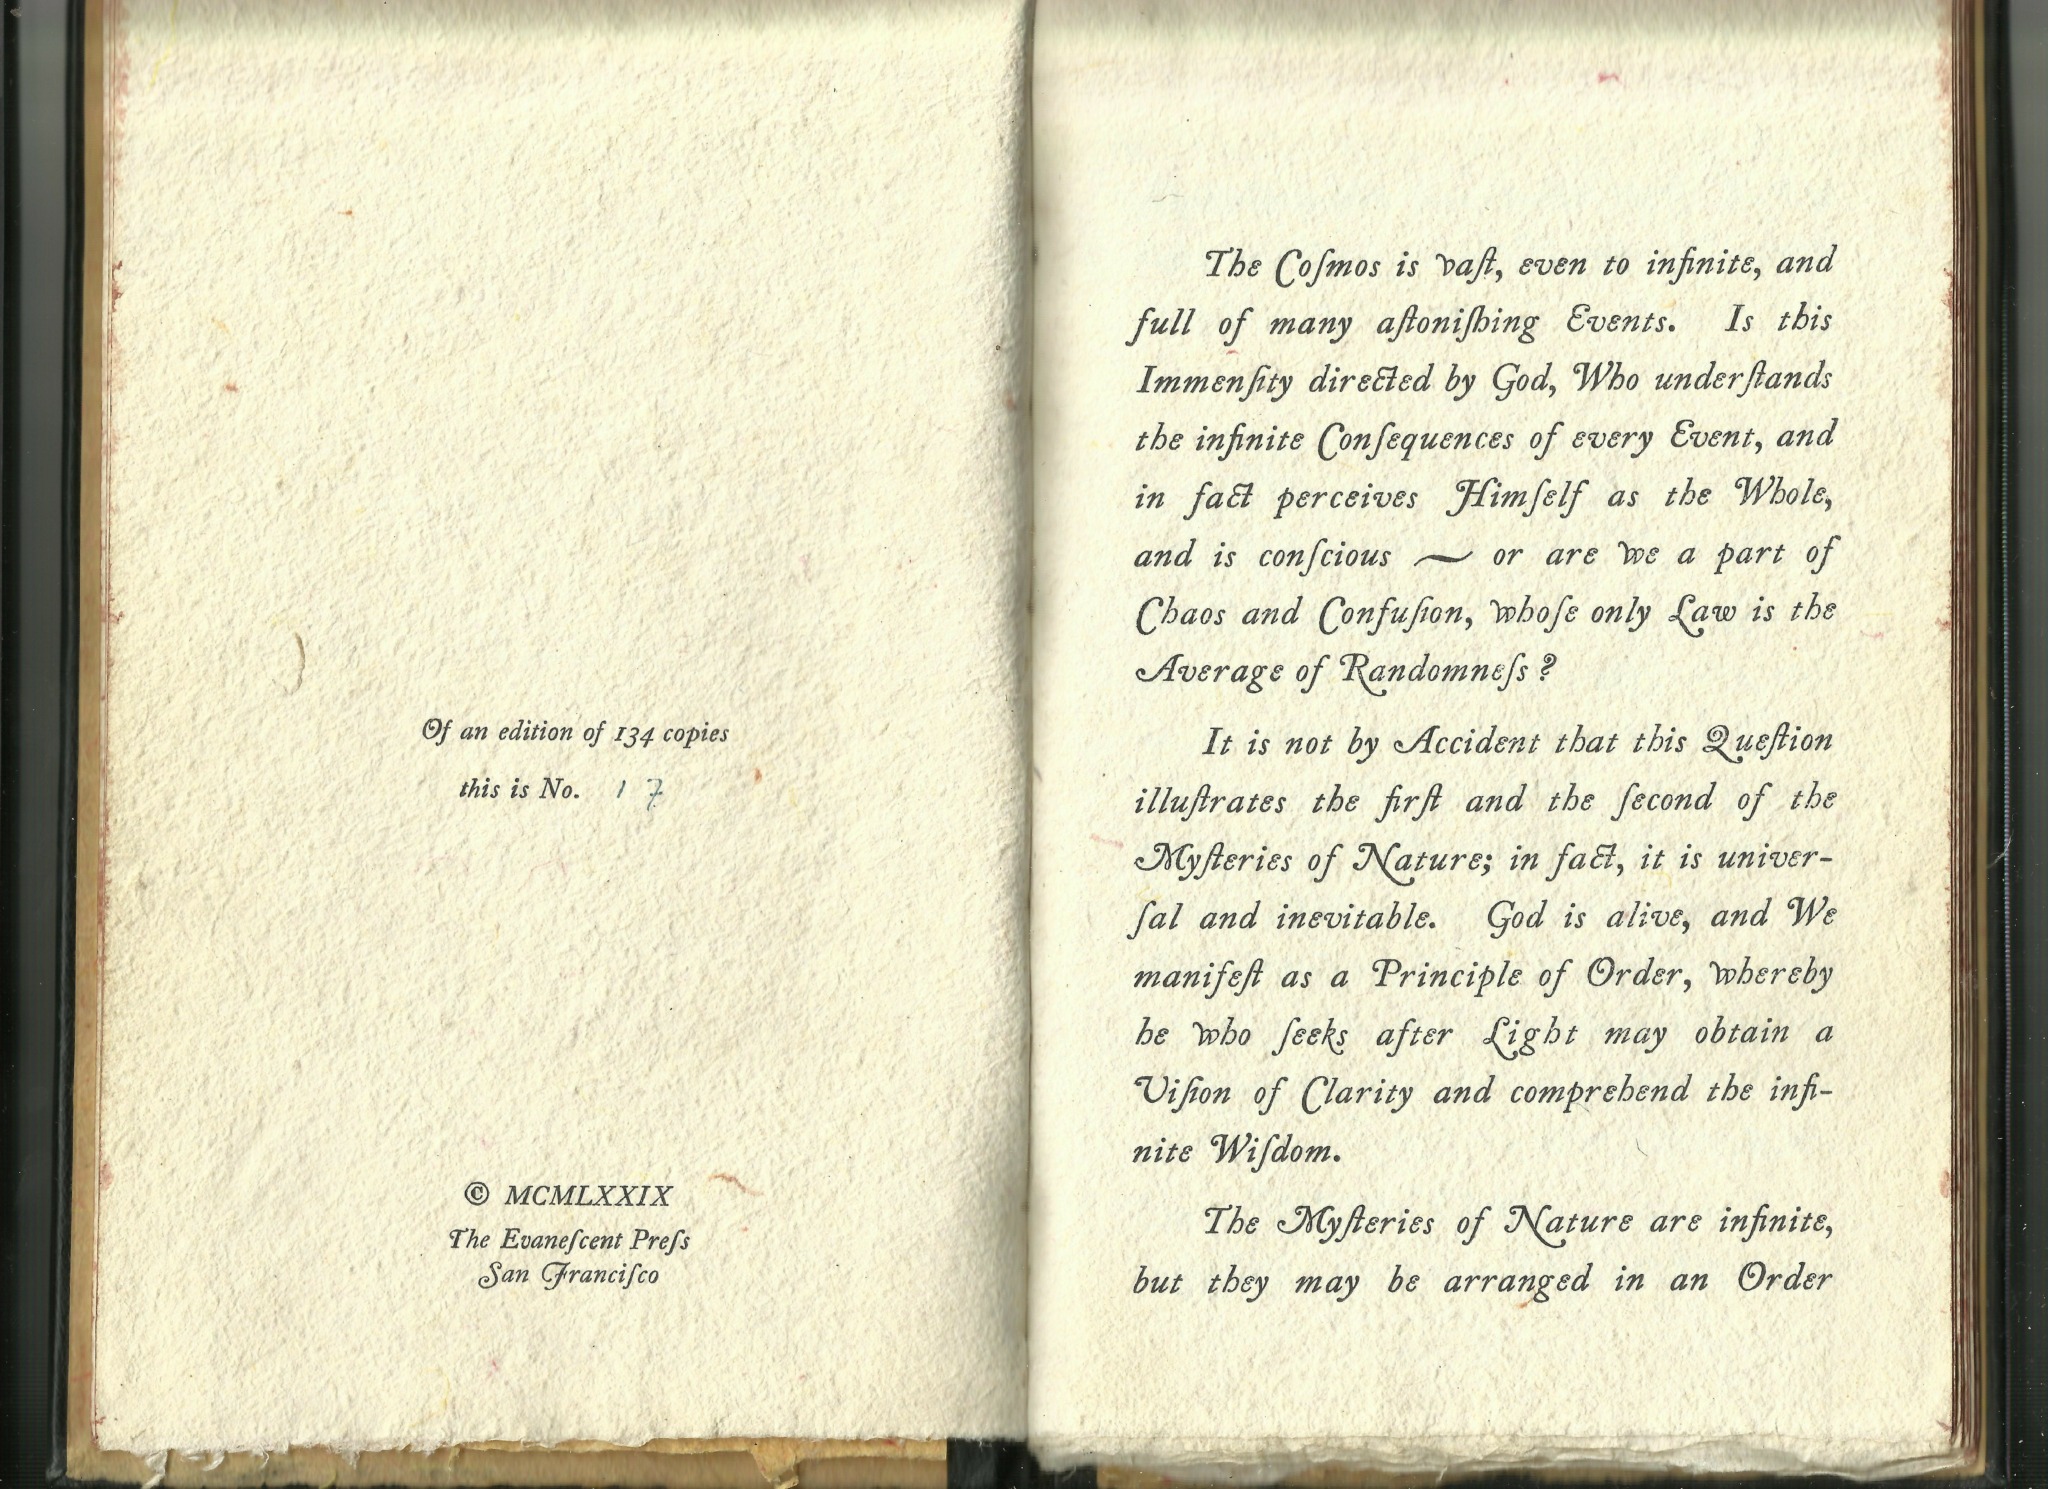 Of an edition of 134 copies
this is No. 17
© MCMLXXIX
The Evaneſcent Preſs
San Franciſco
The Coſmos is vaſt, even to infinite, and
full of many aſtoniſhing Events. Is this
Immenſity directed by God, Who underſtands
the infinite Conſequences of every Event, and
in fact perceives Himſelf as the Whole,
and is conſcious ~ or are we a part of
Chaos and Confuſion, whoſe only Law is the
Average of Randomneſs ?
It is not by Accident that this Queſtion
illuſtrates the firſt and the ſecond of the
Myſteries of Nature; in fact, it is univer-
ſal and inevitable. God is alive, and We
manifeſt as a Principle of Order, whereby
he who ſeeks after Light may obtain a
Viſion of Clarity and comprehend the infi-
nite Wiſdom.
The Myſteries of Nature are infinite,
but they may be arranged in an Order